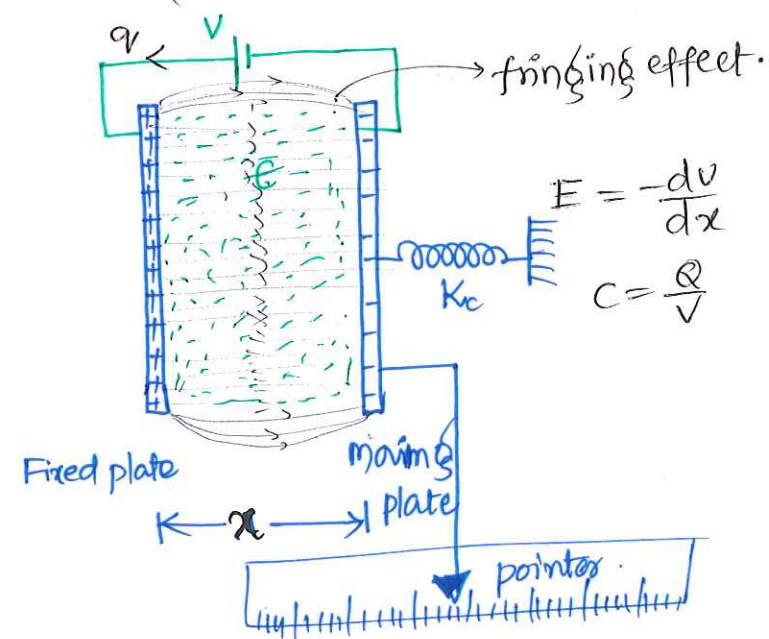 q V
fringing effect.
ε
E = -dv/dx
Kc
C = Q/V
Fixed plate
moving plate
x
pointer.